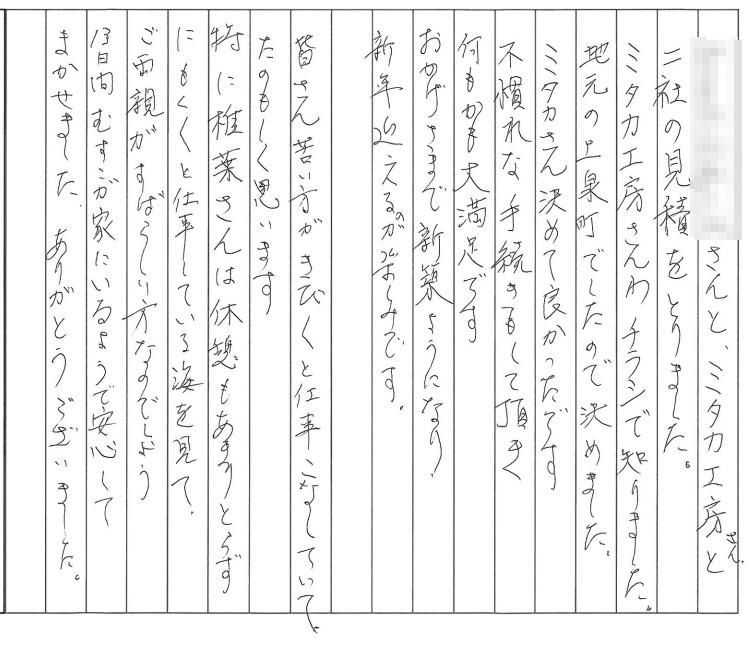 さんと、ミタカ工房さんと
二社の見積をとりました。
ミタカ工房さんわチラシで知りました。
地元の上泉町でしたので決めました。
ミタカさん決めて良かったです
不慣れな手続きもして頂き
何もかも大満足です
おかげさまで新築ようになり、
新年迎えるのが楽しみです。
皆さん苦い方がきびくと仕事こなしていて、
たのもしく思います
特に椎葉さんは休憩もあまりとらず
にもくくと仕事している海を見て、
ご両親がすばらしい方なのでしょう
13日間むすこが家にいるようで安心して
まかせました。ありがとうございました。